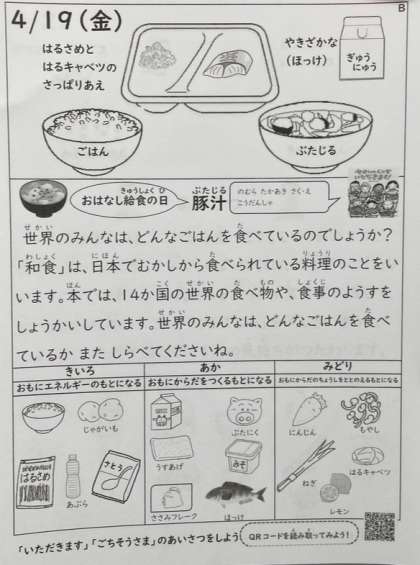 B
4/19(金)
はるさめと
はるキャベツの
さっぱりあえ
やきざかな
(ほっけ)
ぎゅう
にゅう
ごはん
ぶたじる
きゅうしょく ひ
おはなし給食の日
ぶたじる
豚汁
のむら たかあき さく・え
こうだんしゃ
せかい た
世界のみんなは、どんなごはんを食べているのでしょうか?
わしょく にほん た りょうり
「和食」は、日本でむかしから食べられている料理のことをい
ほん こく せかい た もの しょくじ
います。本では、14か国の世界の食べ物や、食事のようすを
せかい た
しょうかいしています。世界のみんなは、どんなごはんを食べ
ているか また しらべてくださいね。
きいろ
おもにエネルギーのもとになる
じゃがいも
はるさめ
あぶら
さとう
あか
おもにからだをつくるもとになる
ぶたにく
うすあげ
みそ
ささみフレーク
ほっけ
みどり
おもにからだのちょうしをととのえるもとになる
にんじん
もやし
はるキャベツ
ねぎ
レモン
「いただきます」「ごちそうさま」のあいさつをしよう
QRコードを読み取ってみよう!